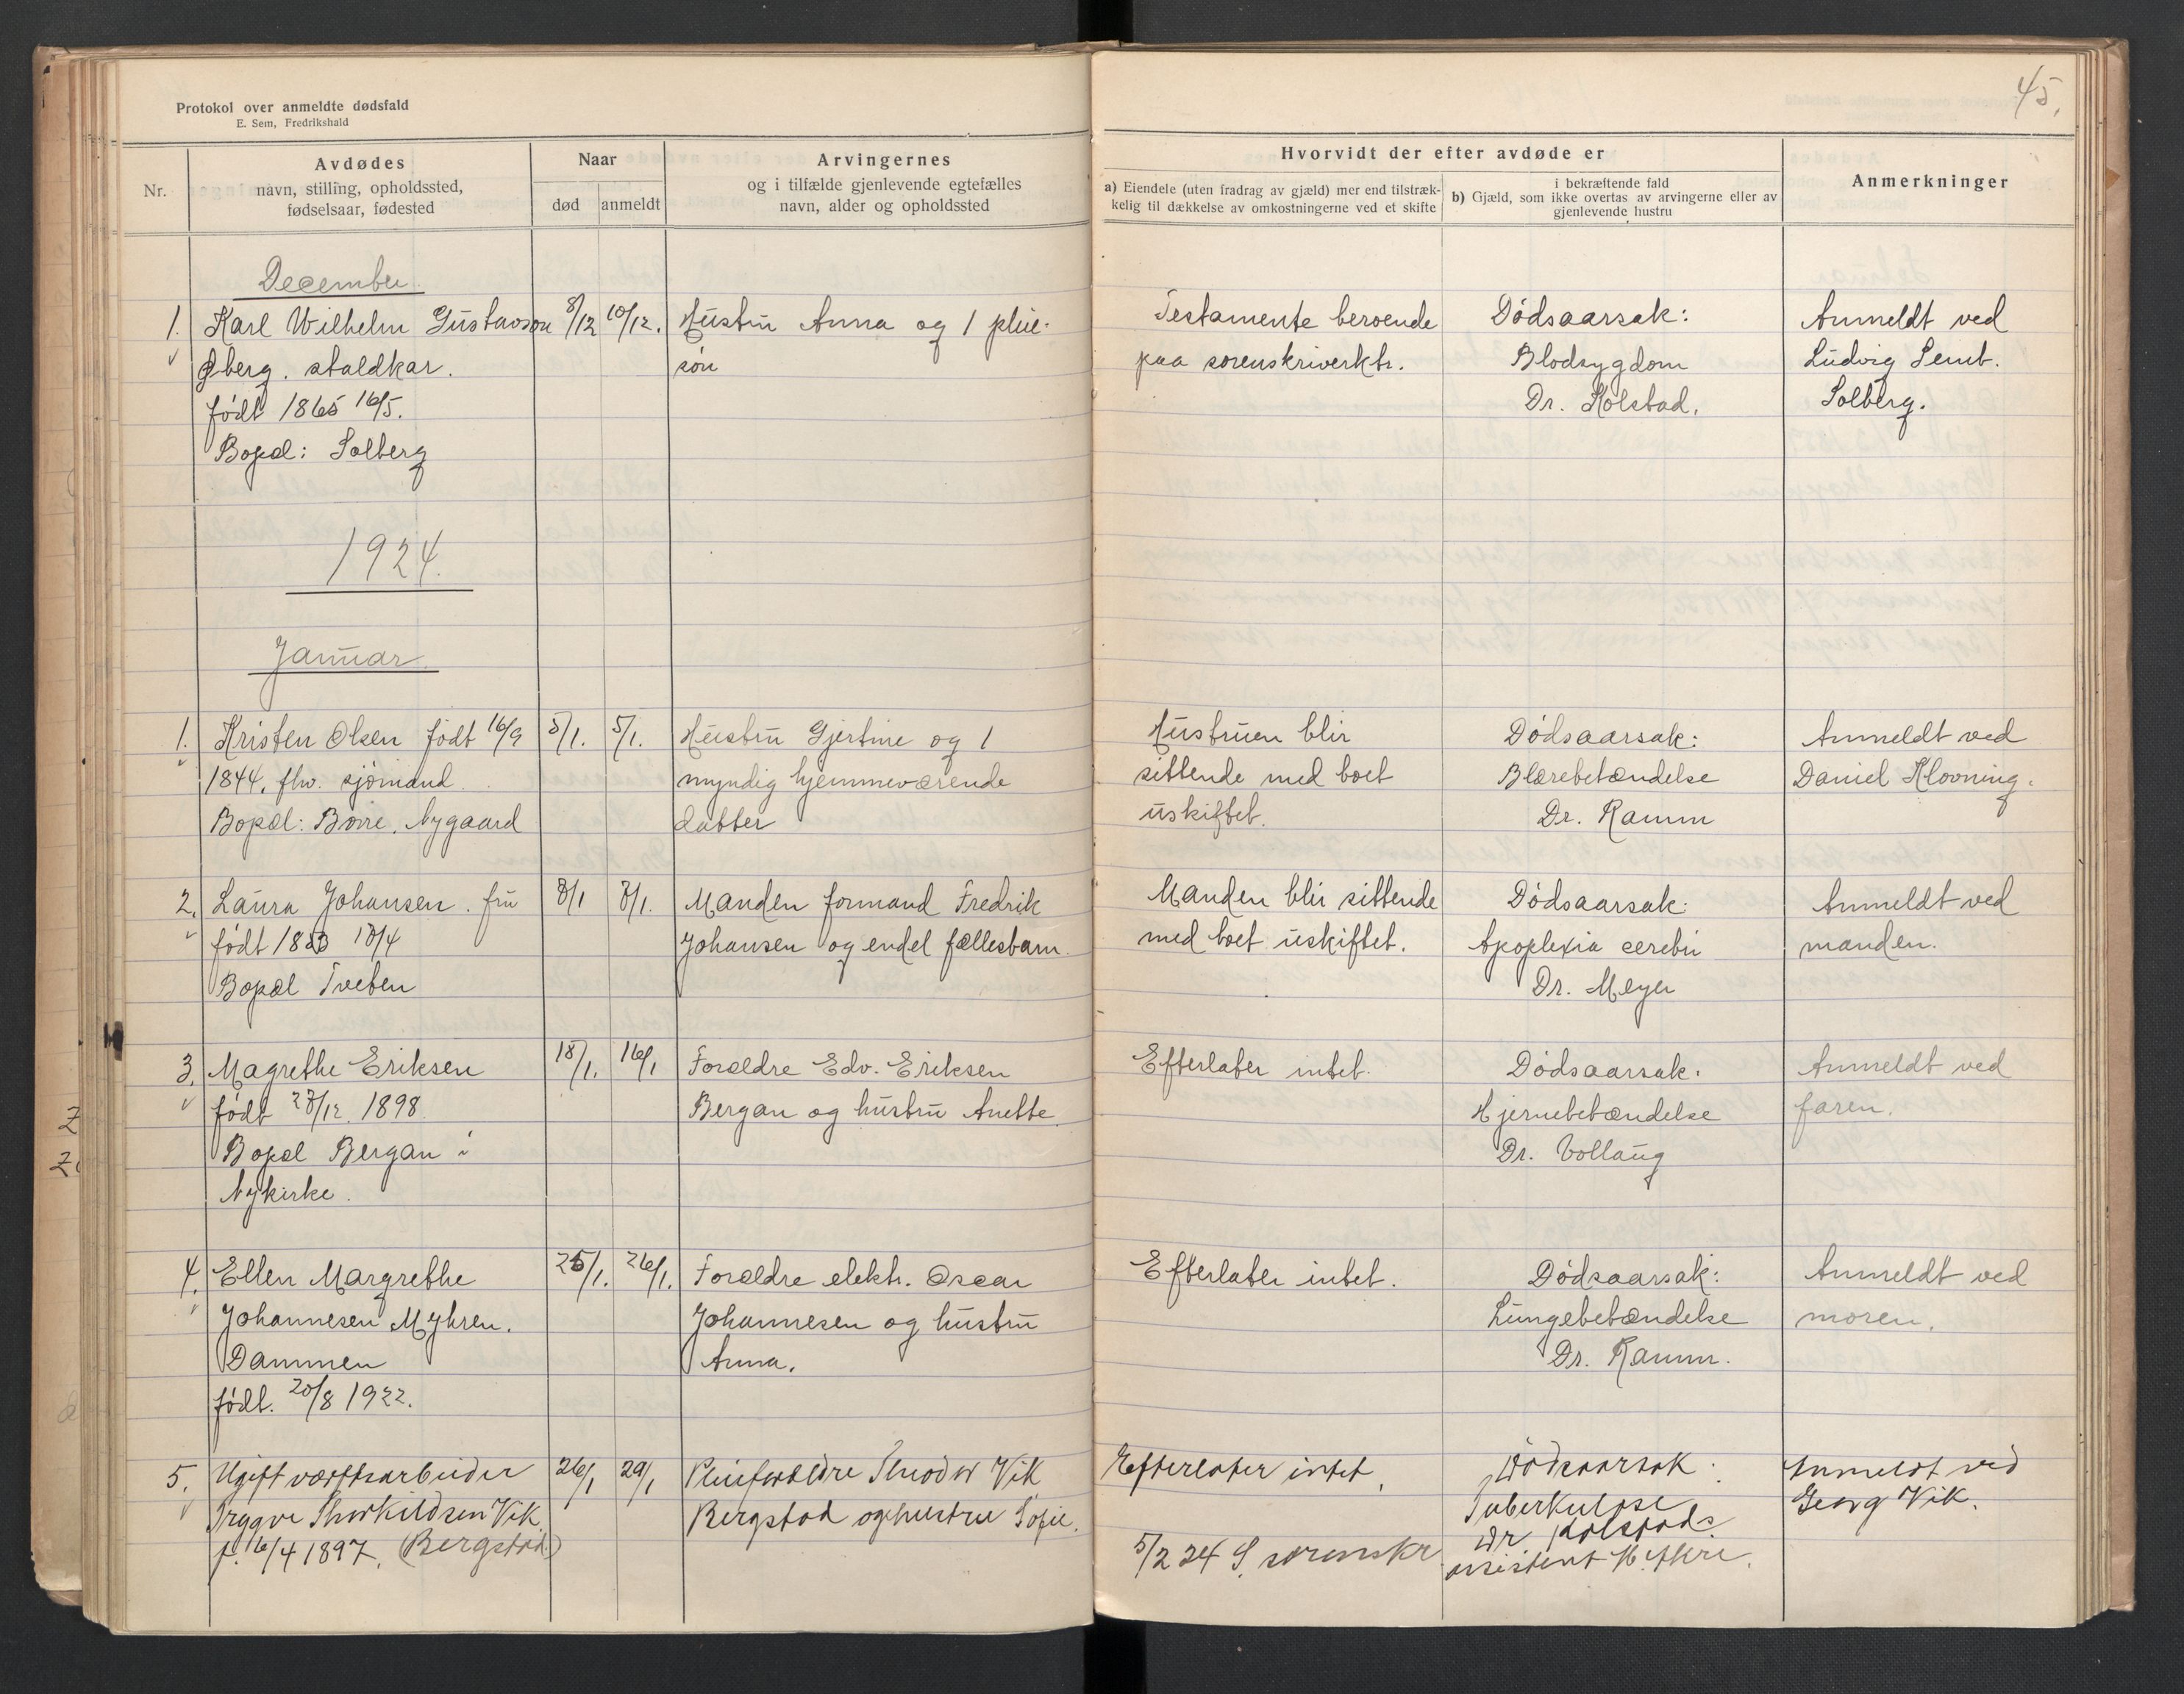 45.
Protokol over anmeldte dødsfald
E. Sem, Fredrikshald
Nr.
Avdødes
navn, stilling, opholdssted,
fødselsaar, fødested
Naar
død
anmeldt
Arvingernes
og i tilfælde gjenlevende egtefælles
navn, alder og opholdssted
Hvorvidt der efter avdøde er
a) Eiendele (uten fradrag av gjæld) mer end tilstræk-
kelig til dækkelse av omkostningerne ved et skifte
i bekræftende fald
b) Gjæld, som ikke overtas av arvingerne eller av
gjenlevende hustru
Anmerkninger
December
1. Karl Wilhelm Gustavson 8/12 10/12. Hustru Anna og 1 pleie- Testamente beroende Dødsaarsak: Anmeldt ved
Øberg. staldkar. søn paa sorenskriverktr. Blodsygdom Ludvig Semb.
født 1865 16/5. Dr. Kolstad. Solberg.
Bopæl: Solberg
1924.
Januar
1. Kristen Olsen født 16/9 5/1. 5/1. Hustru Gjertine og 1 Hustruen blir Dødsaarsak: Anmeldt ved
1844, fhv. sjømand myndig hjemmeværende sittende med boet Blærebetændelse Daniel Klovning.
Bopæl: Borre. Nygaard datter uskiftet. Dr. Ramm
2. Laura Johansen. fru 8/1 8/1. Manden formand Fredrik Manden blir sittende Dødsaarsak: Anmeldt ved
født 1883 18/4 Johansen og endel fællesbarn. med boet uskiftet. Apoplexia cerebri manden.
Bopæl Tveten Dr. Meyer
3. Magrethe Eriksen 15/1. 16/1 Forældre Edv. Eriksen Efterlater intet. Dødsaarsak: Anmeldt ved
født 28/12. 1898. Bergan og hustru Anette. Hjernebetændelse faren.
Bopæl Bergan i Dr. Vollaug
Nykirke.
4. Ellen Margrethe 25/1. 26/1. Forældre elektr. Oscar Efterlater intet. Dødsaarsak: Anmeldt ved
Johannesen Myhren. Johannesen og hustru Lungebetændelse moren.
Dammen Anna. Dr. Ramm.
født. 20/8 1922.
5. Ugift værftsarbeider 26/1 29/1 Pleieforældre Teodor Vik Efterlater intet. Dødsaarsak: Anmeldt ved
Trygve Thorkildsen Vik Bergstad og hustru Sofie. Tuberkulose Georg Vik.
f. 16/4 1897. (Bergstad) 5/2 24 S. sorenskr. Dr Kolstads
assistent